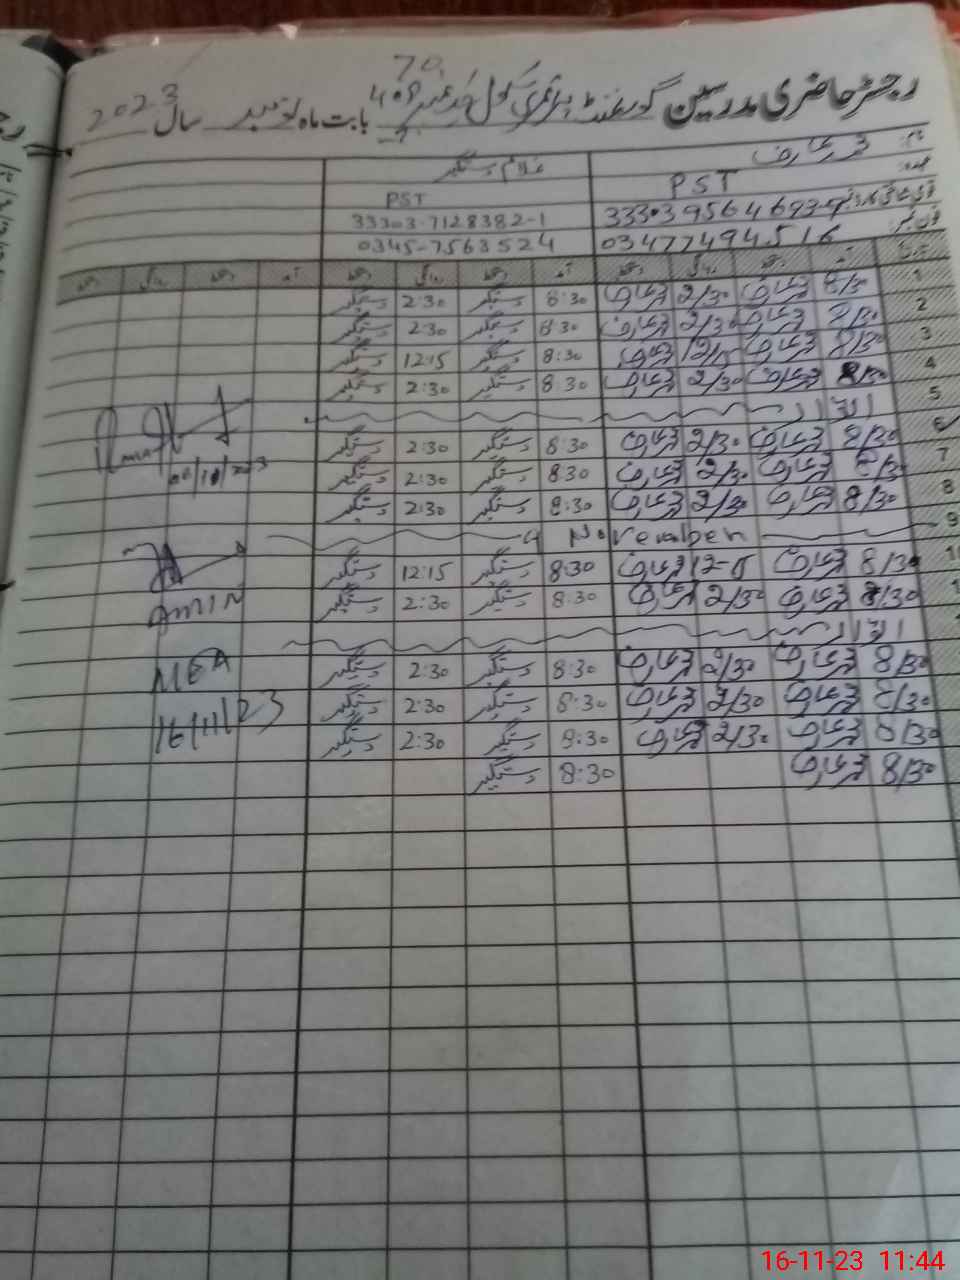 رجسٹر حاضری مدرسین گورنمنٹ پرائمری سکول 408 70 بابت ماہ نومبر سال 2023
نام محمد عارف غلام دستگیر
عہدہ PST PST
33303-7128382-1
فون نمبر 03477494516 0345-7563524
تاریخ آمد دستخط روانگی دستخط آمد دستخط روانگی دستخط آمد دستخط روانگی دستخط
1 8/30 محمد عارف 2/30 محمد عارف 8:30 دستگیر 2:30 دستگیر
2 8/30 محمد عارف 2/30 محمد عارف 8:30 دستگیر 2:30 دستگیر
3 8/30 محمد عارف 12/15 محمد عارف 8:30 دستگیر 12:15 دستگیر
4 8/30 محمد عارف 2/30 محمد عارف 8:30 دستگیر 2:30 دستگیر
5 اتوار
6 8/30 محمد عارف 2/30 محمد عارف 8:30 دستگیر 2:30 دستگیر
7 8/30 محمد عارف 2/30 محمد عارف 8:30 دستگیر 2:30 دستگیر
8 8/30 محمد عارف 2/30 محمد عارف 8:30 دستگیر 2:30 دستگیر
9 9 November
10 8/30 محمد عارف 12-15 محمد عارف 8:30 دستگیر 12:15 دستگیر
8/30 محمد عارف 2/30 محمد عارف 8:30 دستگیر 2:30 دستگیر
اتوار
8/30 محمد عارف 2/30 محمد عارف 8:30 دستگیر 2:30 دستگیر
8/30 محمد عارف 2/30 محمد عارف 8:30 دستگیر 2:30 دستگیر
8/30 محمد عارف 2/30 محمد عارف 8:30 دستگیر 2:30 دستگیر
8/30 محمد عارف 8:30 دستگیر
Amin
MEA
16/11/23
16-11-23 11:44